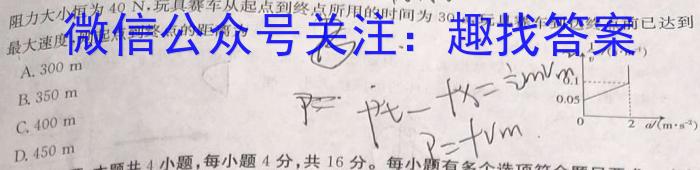 阻力大小恒为 40 N,玩具赛车从起点到终点所用的时间为 30
已达到
最大速度
微信公众号关注：趣找答案
A. 300 m
B. 350 m
C. 400 m
D. 450 m
0.1
0.05
0
2 a/(m·s⁻²)
P=
Pt - fx = ½mvm
P=fvm
本题共 4 小题,每小题 4 分,共 16 分。每小题有多个选项符合题目